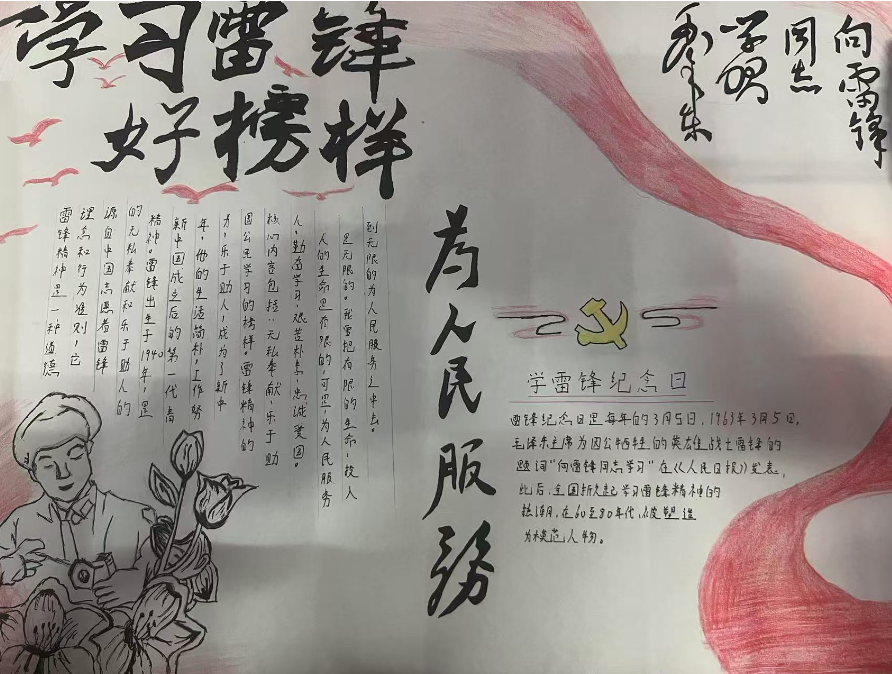 学习雷锋
好榜样
向雷锋
同志
学习
毛泽东
雷锋精神是一种道德
理念和行为准则,它
源自中国志愿者雷锋
的无私奉献和乐于助人的
精神。雷锋出生于1940年,是
新中国成立后的第一代青
年,他的生活简朴,工作努
力,乐于助人,成为了新中
国公民学习的榜样。雷锋精神的
核心内容包括:无私奉献、乐于助
人、勤奋学习、艰苦朴素、忠诚爱国。
人的生命是有限的,可是,为人民服务
是无限的。我要把有限的生命,投入
到无限的为人民服务之中去。
为人民服务
学雷锋纪念日
雷锋纪念日是每年的3月5日,1963年3月5日,
毛泽东主席为因公牺牲的英雄战士雷锋的
题词“向雷锋同志学习”在《人民日报》发表,
此后,全国掀起学习雷锋精神的
热潮,在60至80年代,被塑造
为模范人物。